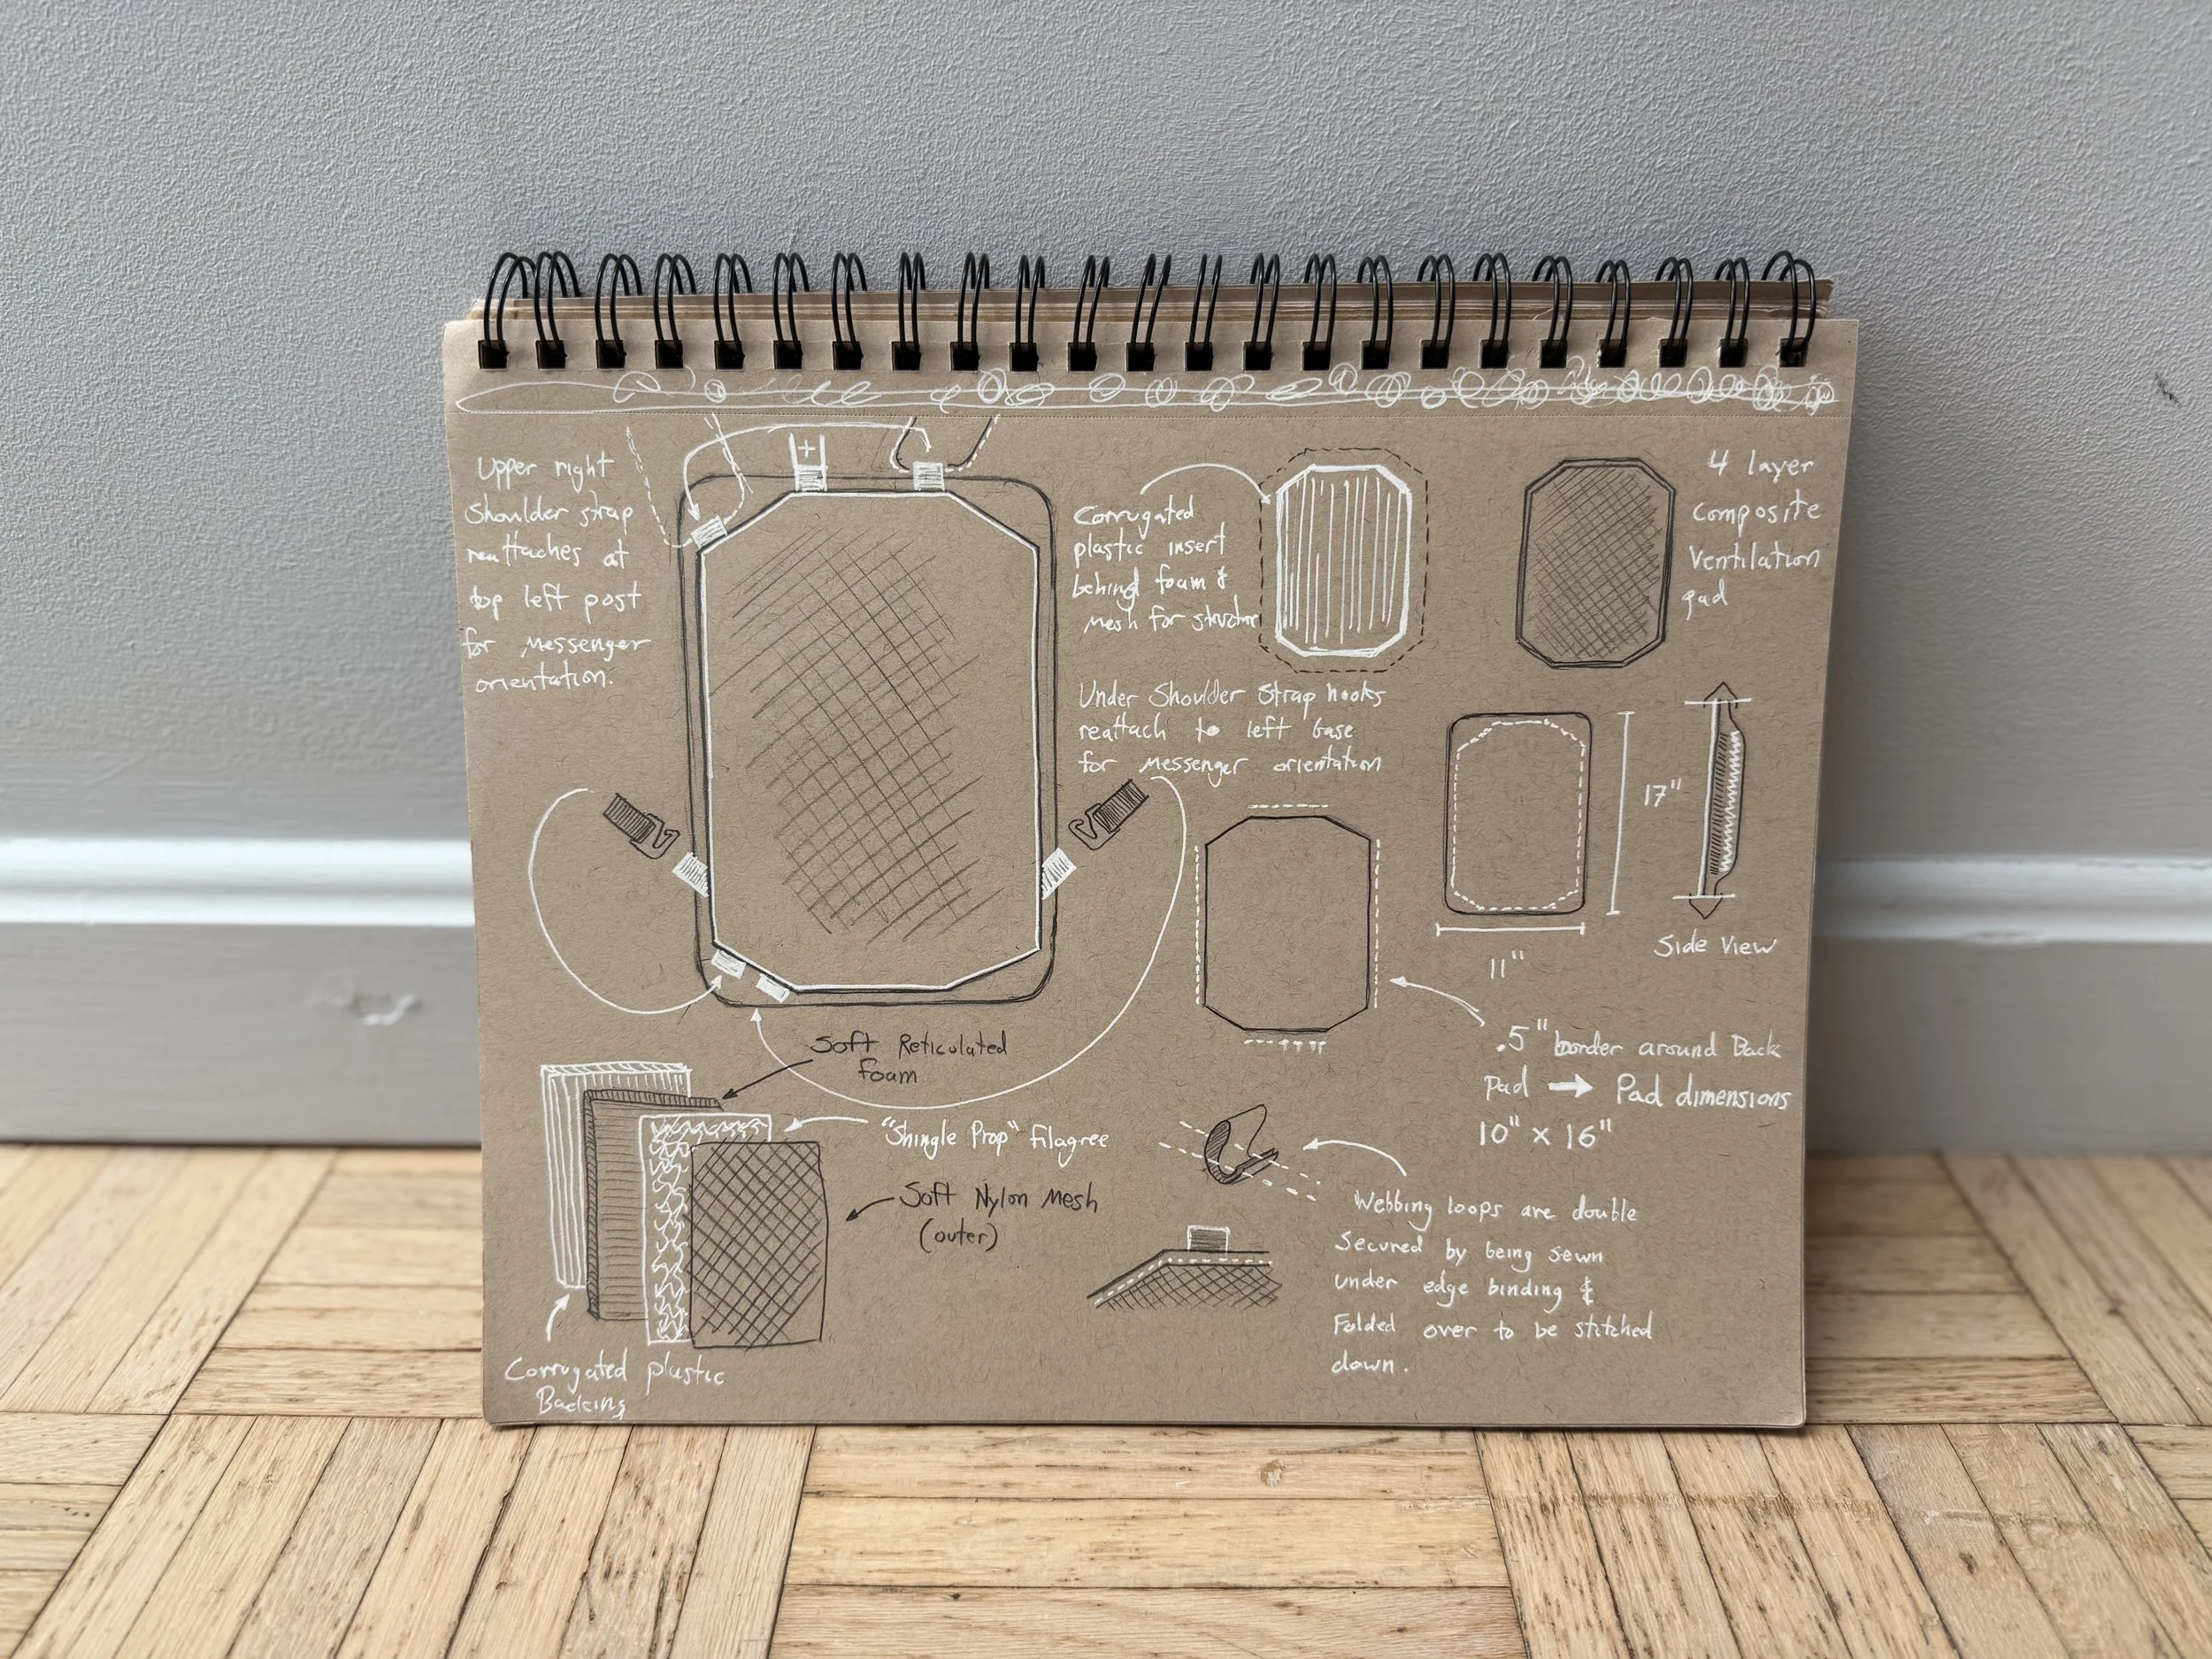 Upper right
Shoulder strap
reattaches at
top left post
for messenger
orientation.
+
Corrugated
plastic insert
behind foam &
mesh for structure
4 layer
composite
Ventilation
pad
Under Shoulder Strap hooks
reattach to left base
for messenger orientation
17"
11"
Side View
.5" border around Back
Pad → Pad dimensions
10" x 16"
Soft Reticulated
foam
"Shingle Prop" filagree
Soft Nylon Mesh
(outer)
Corrugated plastic
Backing
Webbing loops are double
Secured by being sewn
under edge binding &
Folded over to be stitched
down.